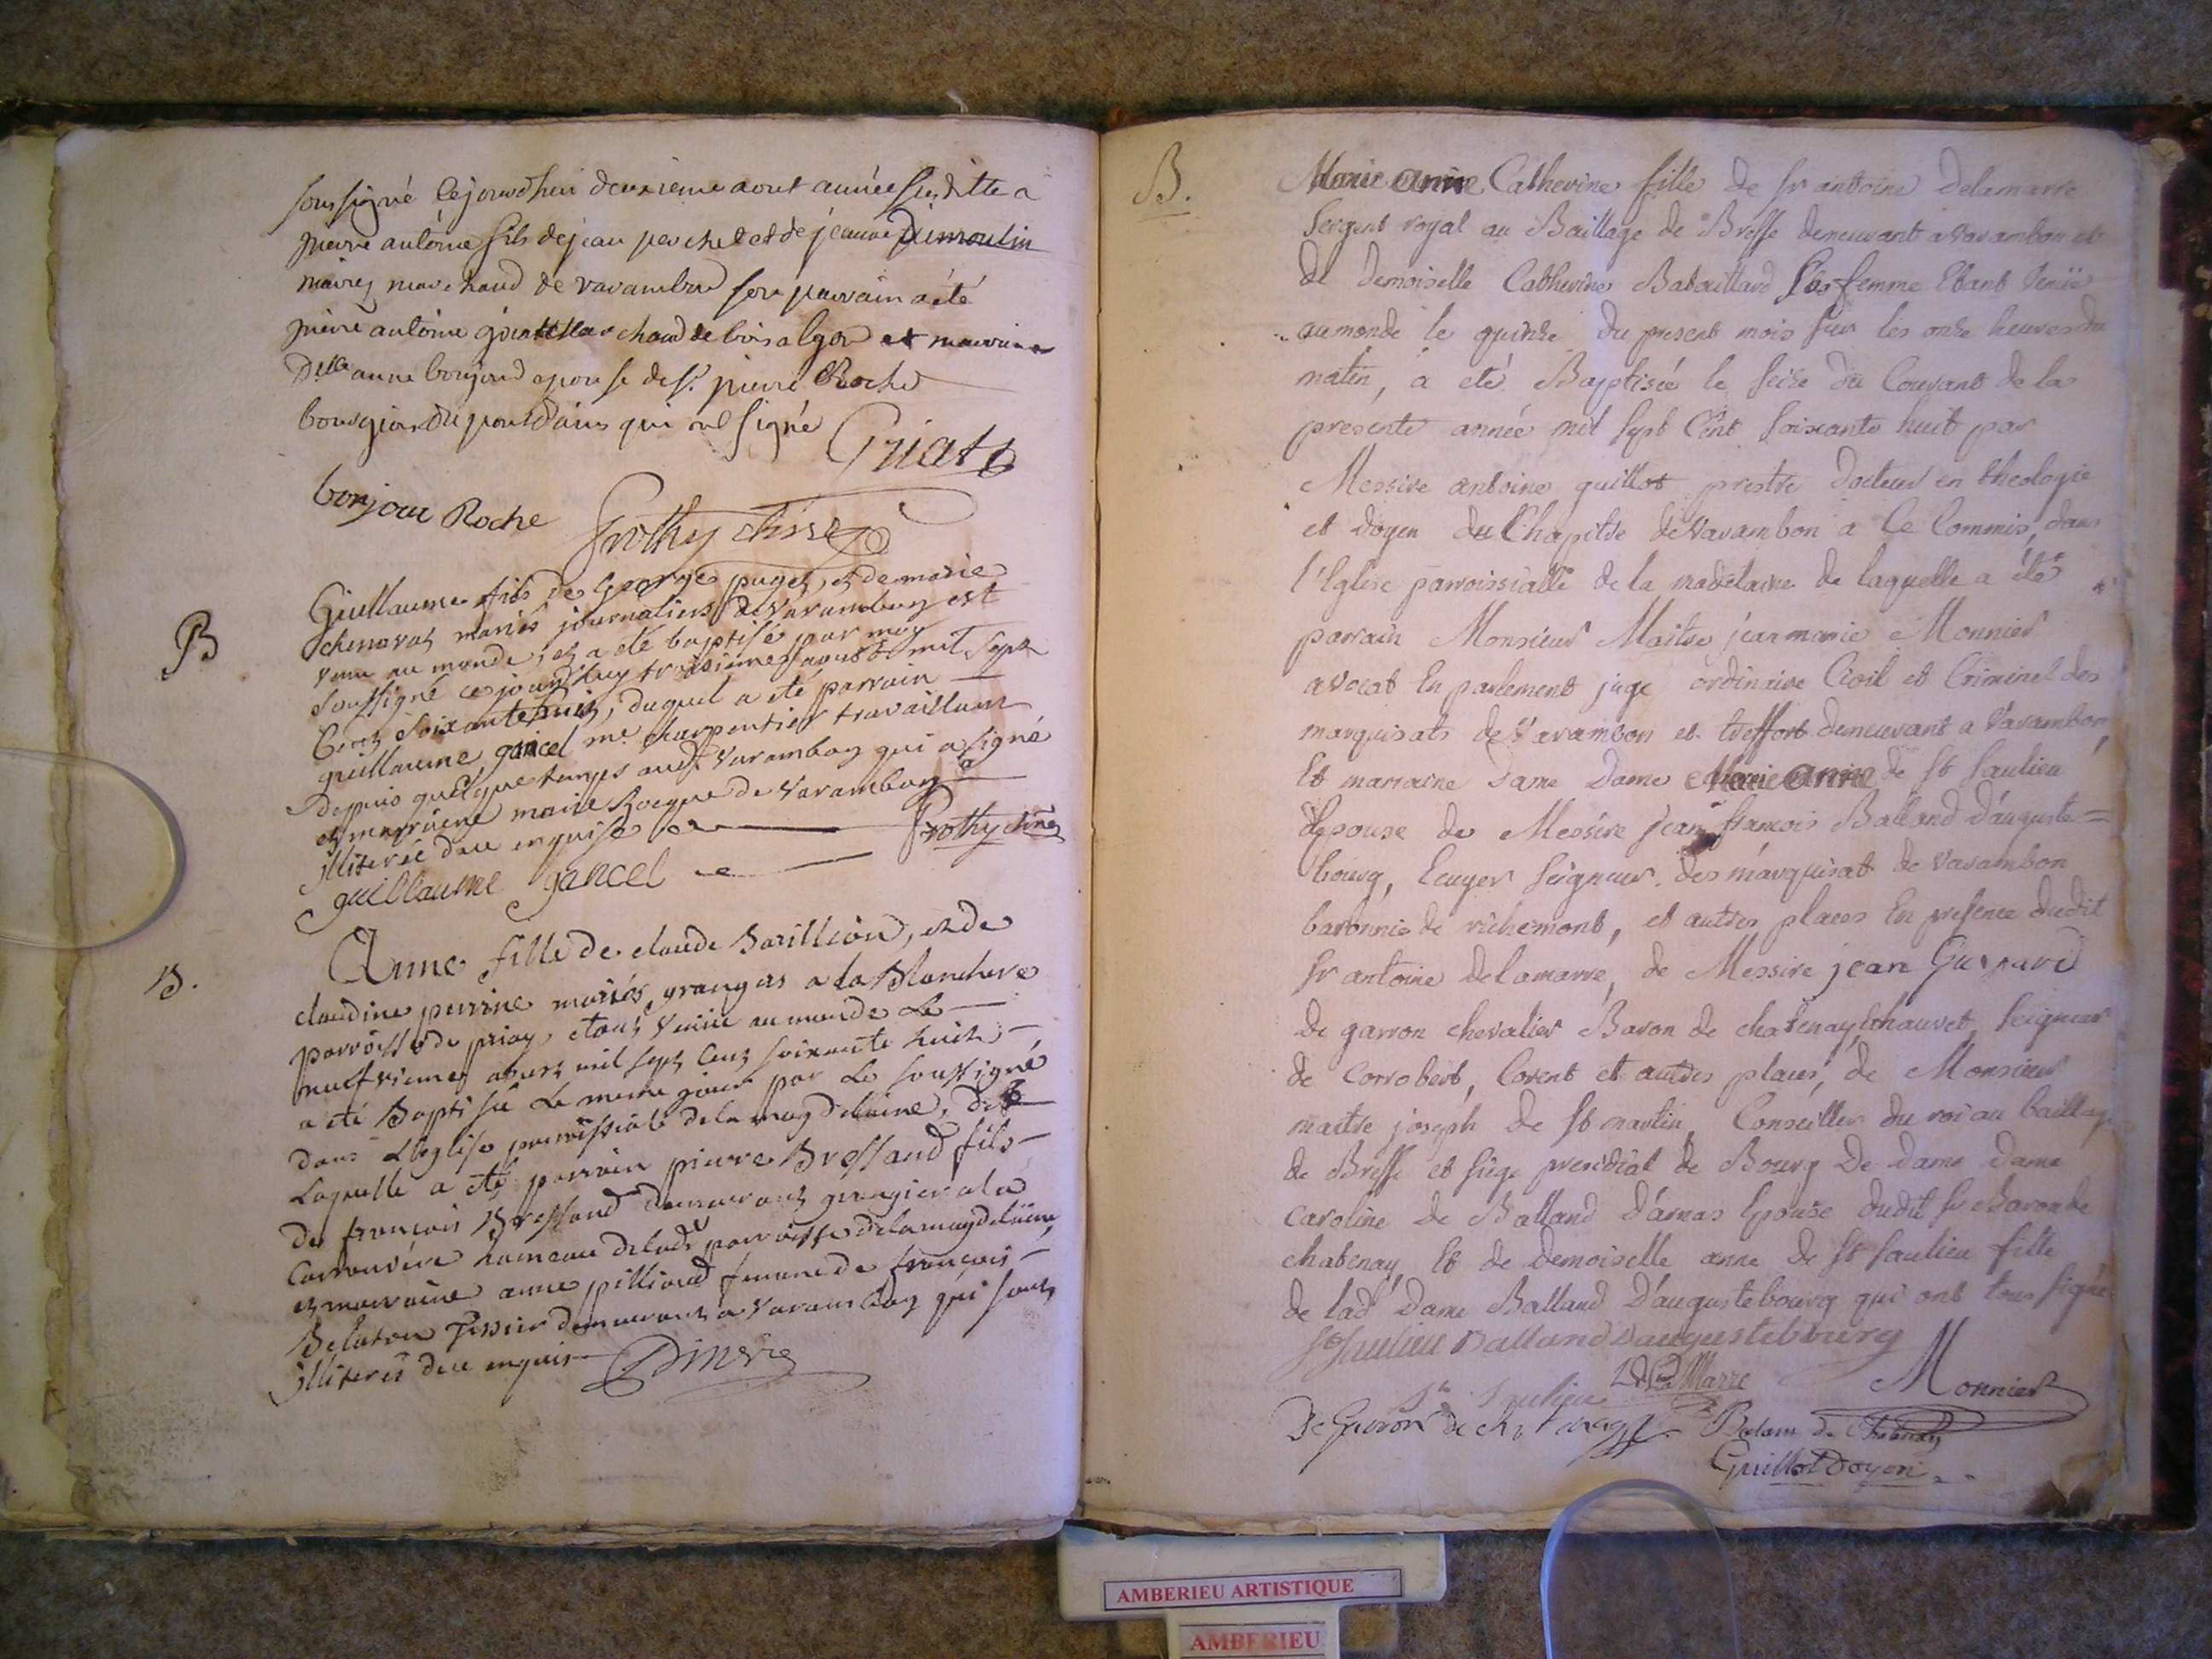 soussigné cejourdhui deuxieme aout année susditte a
pierre antoine fils de jean perchet et de jeanne Dumoulin
mariez marchand de varambon son parrain a été
pierre antoine griat marchand de bois a lyon et marraine
Dlle anne bonjour epouse de sr pierre Roche
bourgeois du pont d'ains qui ont signé
Griat
bonjour Roche
B
Guillaume fils de George puget, et de marie
chenavat mariés journaliers de varambon est
venu au monde, et a eté baptisé par moy
soussigné ce jourdhuy troisieme aout mil sept
Cent soixante huit, duquel a eté parrain
guillaume gancel me charpentier travaillant
depuis quelque temps audt Varambon qui a signé
et marraine marie Rocque de Varambon
illiterée de ce enquise
guillaume gancel
B.
Anne fille de claude Barillion, et de
claudine perrine mariés grangers a la Blanchere
parroisse de priay, etant venüe au monde Le
neufvieme aoust mil sept cent soixante huit,
a eté Baptisée Le meme jour par Le soussigné
dans L'eglise parroissiale de la magdelaine, de
Laquelle a eté parrain pierre Bressand fils
de françois Bressand demeurant granger a la
hameau de ladte parroisse de la magdelaine,
et marraine anne pilliand femme de françois
Belaton Tissier demeurant a varambon qui sont
illiterés de ce enquis
B.
Marie anne Catherine fille de sr antoine delamarre
sergent royal au Baillage de Bresse demeurant a varambon et
de demoiselle Catherine Bataillard sa femme Etant venüe
au monde le quinze du present mois sur les onze heures du
matin, a eté Baptisée le seize du Courant de la
presente année mil sept Cent soixante huit par
Messire antoine guillot prestre docteur en theologie
et doyen du Chapitre de Varambon a Ce Commis, dans
l'Eglise parroissialle de la madelaine de laquelle a été
parrain Monsieur Maitre jean marie Monnier
avocat En parlement juge ordinaire Civil et Criminel des
marquisats de Varambon et treffort demeurant a Varambon,
Et marraine dame dame Marie anne de St saulieu
Epouse de Messire jean françois Balland d'auguste=
bourg, Ecuyer seigneur des marquisat de Varambon
baronnie de richemont, et autres places En presence dudit
sr antoine delamarre, de Messire jean Gaspard
de garron chevalier Baron de chatenay, Seigneur
de Corrobert, Corent et autres places, de Monsieur
maitre joseph de St martin Conseiller du roi au baillage
de Bresse et siege presidial de Bourg De dame dame
caroline de Balland d'arnas Epouse dudit sr Baron de
chatenay Et de demoiselle anne de St saulieu fille
de lade Dame Balland D'augustebourg qui ont tous signé
St Saulieu Balland d'augustebourg
St Saulieu
De La Marre
Monnier
De Garron de chatenay
Guillot doyen
AMBERIEU ARTISTIQUE
AMBERIEU